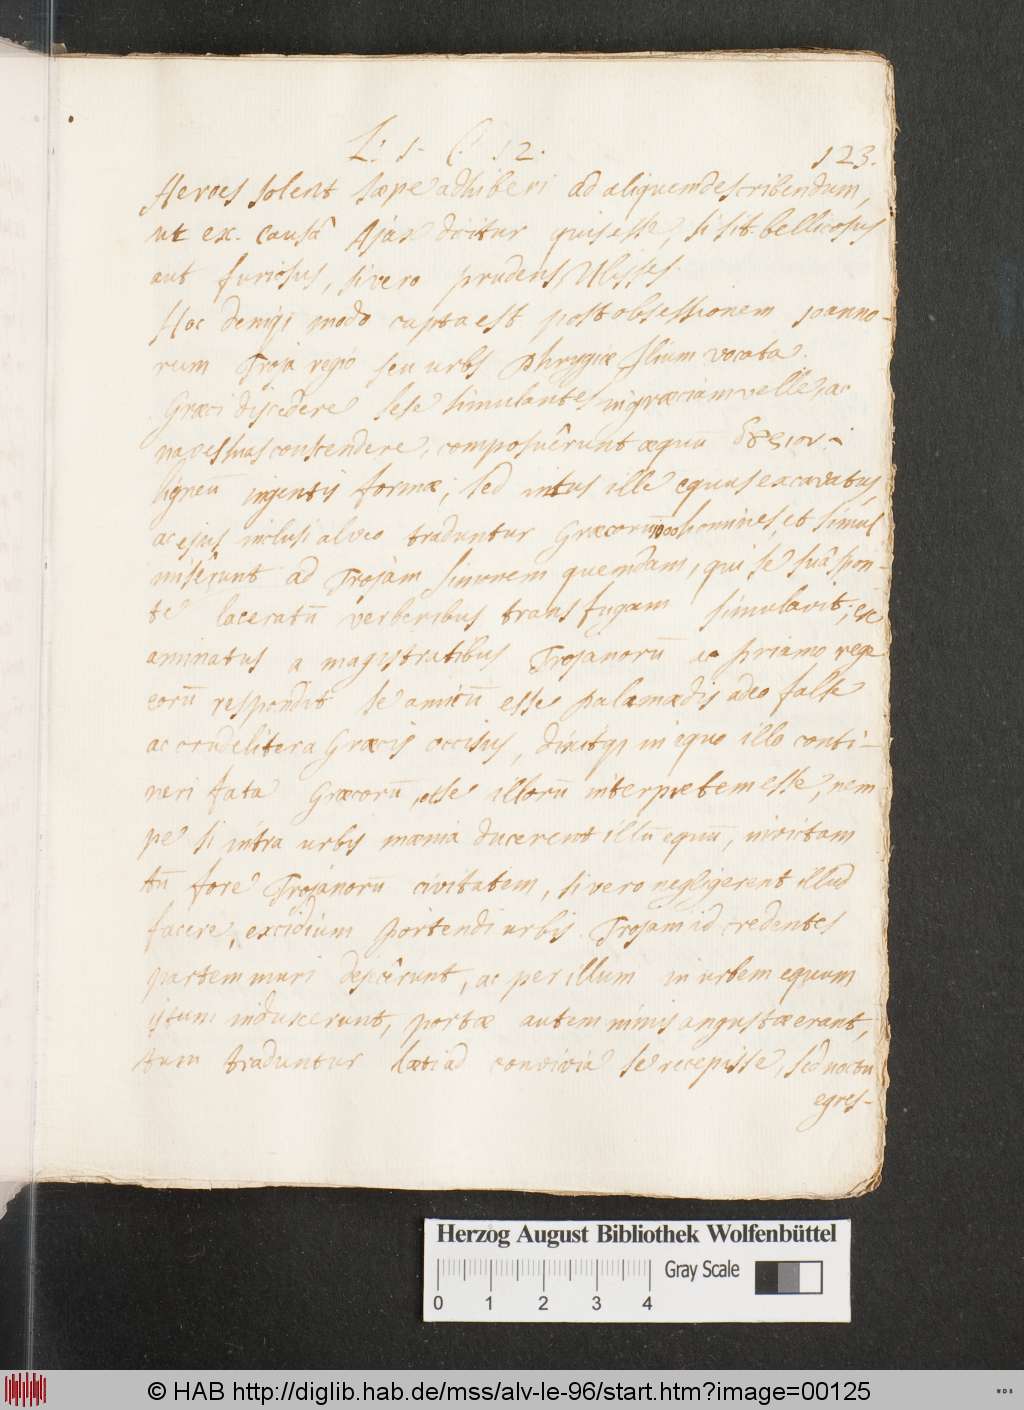 L: 1. C. 12.
123.
Heroes solent sæpe adhiberi ad aliquem describendum,
ut ex. causâ Ajax dicitur quis esse, si sit bellicosus
aut furiosus, si vero prudens, Ulisses.
Hoc deniqȝ modo capta est post obsessionem 10 anno-
rum Troja regio seu urbs Phrygiæ Ilium vocata.
Græci discedere sese simulantes in græciam velle, ac
naves suas conscendere, composuêrunt æquū
ligneū ingentis formæ, sed intus ille equus excavatus,
ac ejus inclusi alveo traduntur Græcorū 1000 homines, et simul
misêrunt ad Trojam Sinonem quendam, qui se suâ spon-
te laceratū verberibus transfugam simulavit; ex
aminatus a magistratibus Trojanorū ac Priamo rege
eorū respondit se amicū esse Palamædis adeo false
ac crudeliter a Græcis occisus, dixitqȝ in equo illo conti-
neri fata Græcorū, et se illorū interpretem esse, nem
pe si intra urbis mænia ducerent illū equū, invictam
tū fore Trojanorū civitatem, si vero negligerent illud
facere, excidium portendi urbis. Trojani id credentes
partem muri dejecêrunt, ac per illum in urbem equum
istum induxerunt, portæ autem nimis angustæ erant,
tum traduntur læti ad convivia se recepisse, sed noctu
egres-
Herzog August Bibliothek Wolfenbüttel
Gray Scale
0 1 2 3 4
© HAB http://diglib.hab.de/mss/alv-le-96/start.htm?image=00125